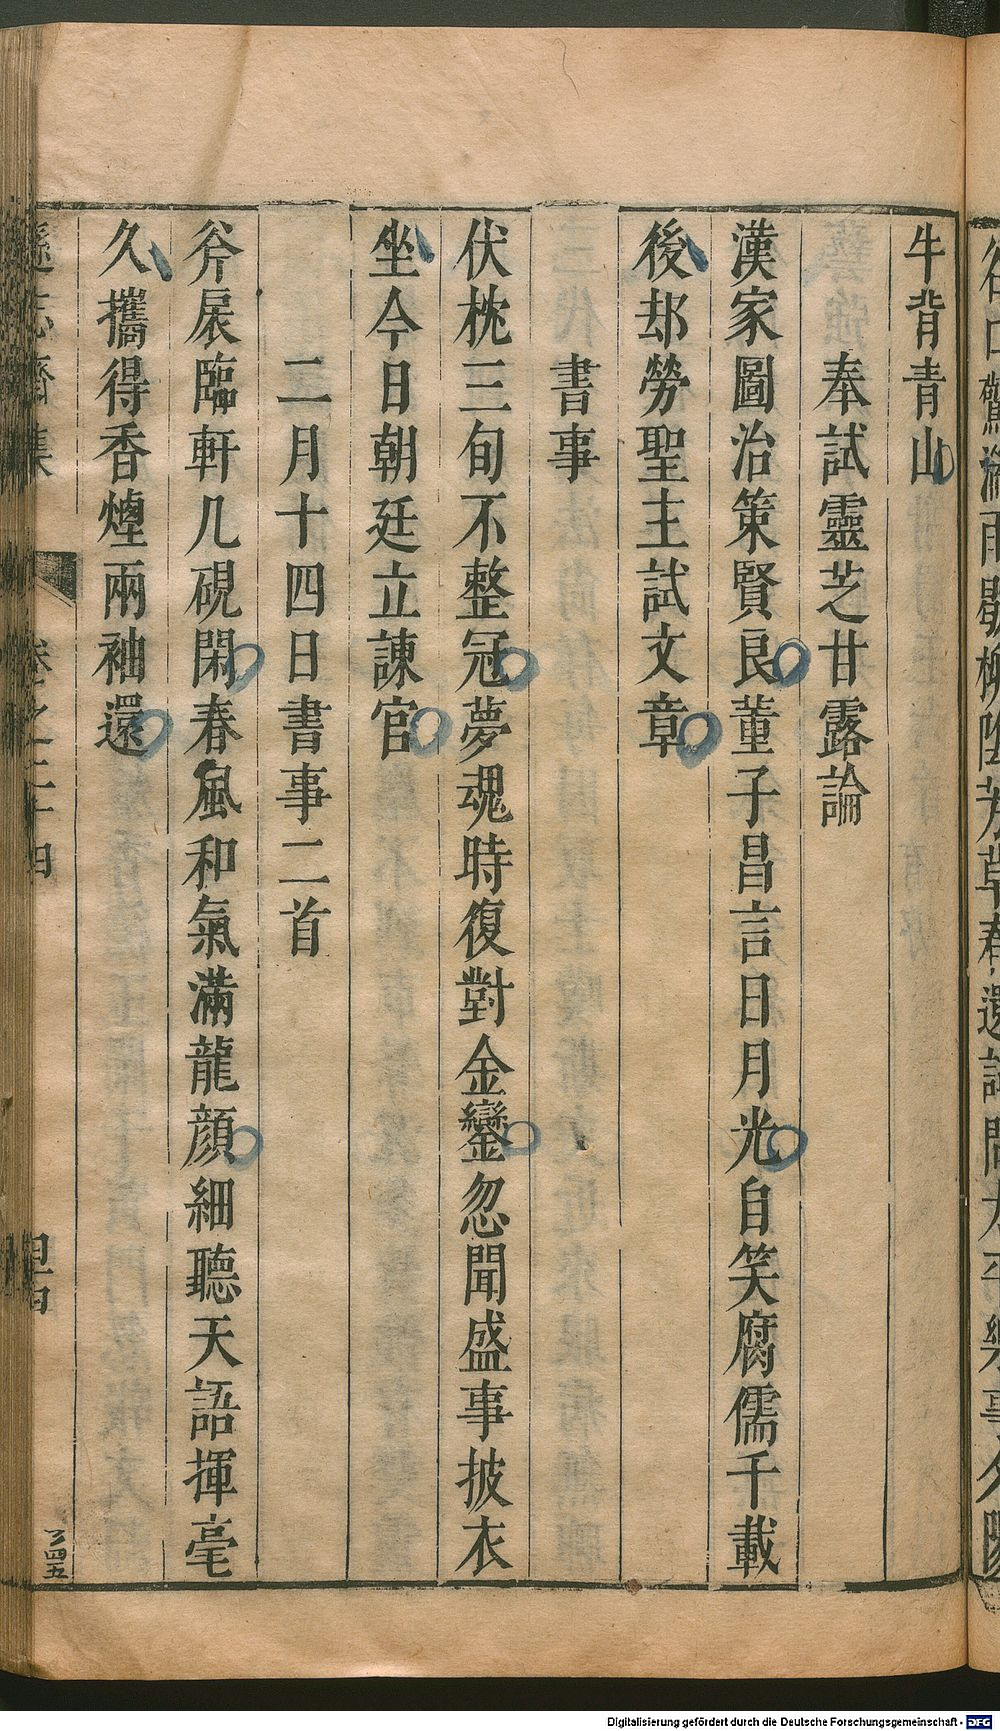 牛背青山
奉試靈芝甘露論
漢家圖治策賢良董子昌言日月光自笑腐儒千載
後却勞聖主試文章
書事
伏枕三旬不整冠夢魂時復對金鑾忽聞盛事披衣
坐今日朝廷立諫官
二月十四日書事二首
斧扆臨軒几硯閑春風和氣滿龍顔細聽天語揮毫
久攜得香煙兩袖還
遜志齋集 卷之二十四
四五
Digitalisierung gefördert durch die Deutsche Forschungsgemeinschaft - DFG